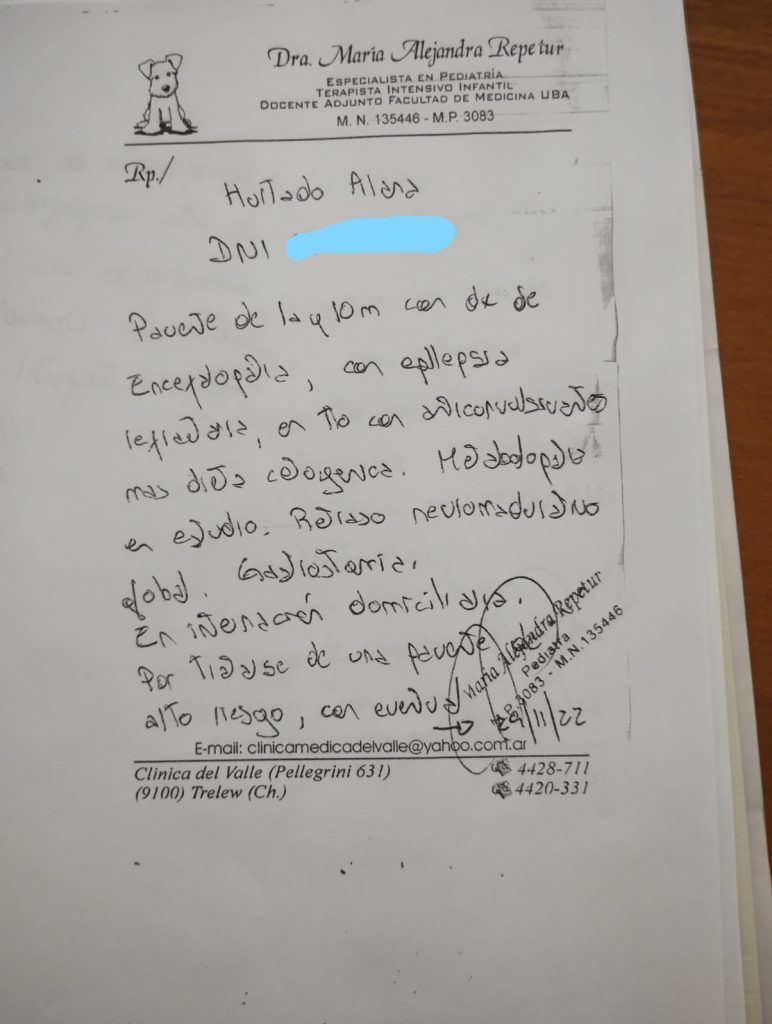 Dra. María Alejandra Repetur
ESPECIALISTA EN PEDIATRÍA
TERAPISTA INTENSIVO INFANTIL
DOCENTE ADJUNTO FACULTAD DE MEDICINA UBA
M. N. 135446 - M.P. 3083
Rp./
Hurtado Alana
DNI
Paciente de 1a y 10m con dx de
Encefalopatia, con epilepsia
refractaria, en tto con anticonvulsivante
mas dieta cetogenica. Metabolopatia
en estudio. Retraso neuromadurativo
global. Gastrostomia.
En internación domiciliaria.
Por tratarse de una paciente
alto riesgo, con eventual →
María Alejandra Repetur
Pediatra
M.P. 3083 - M.N. 135446
29/11/22
E-mail: clinicamedicadelvalle@yahoo.com.ar
Clinica del Valle (Pellegrini 631) 4428-711
(9100) Trelew (Ch.) 4420-331